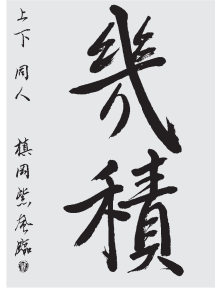 幾積
上下 同人 槙岡紫峰臨